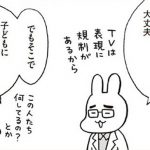 大丈夫
TLは
表現に
規制が
あるから
でもそこで
子どもに
この人たち
何してるの?
とか